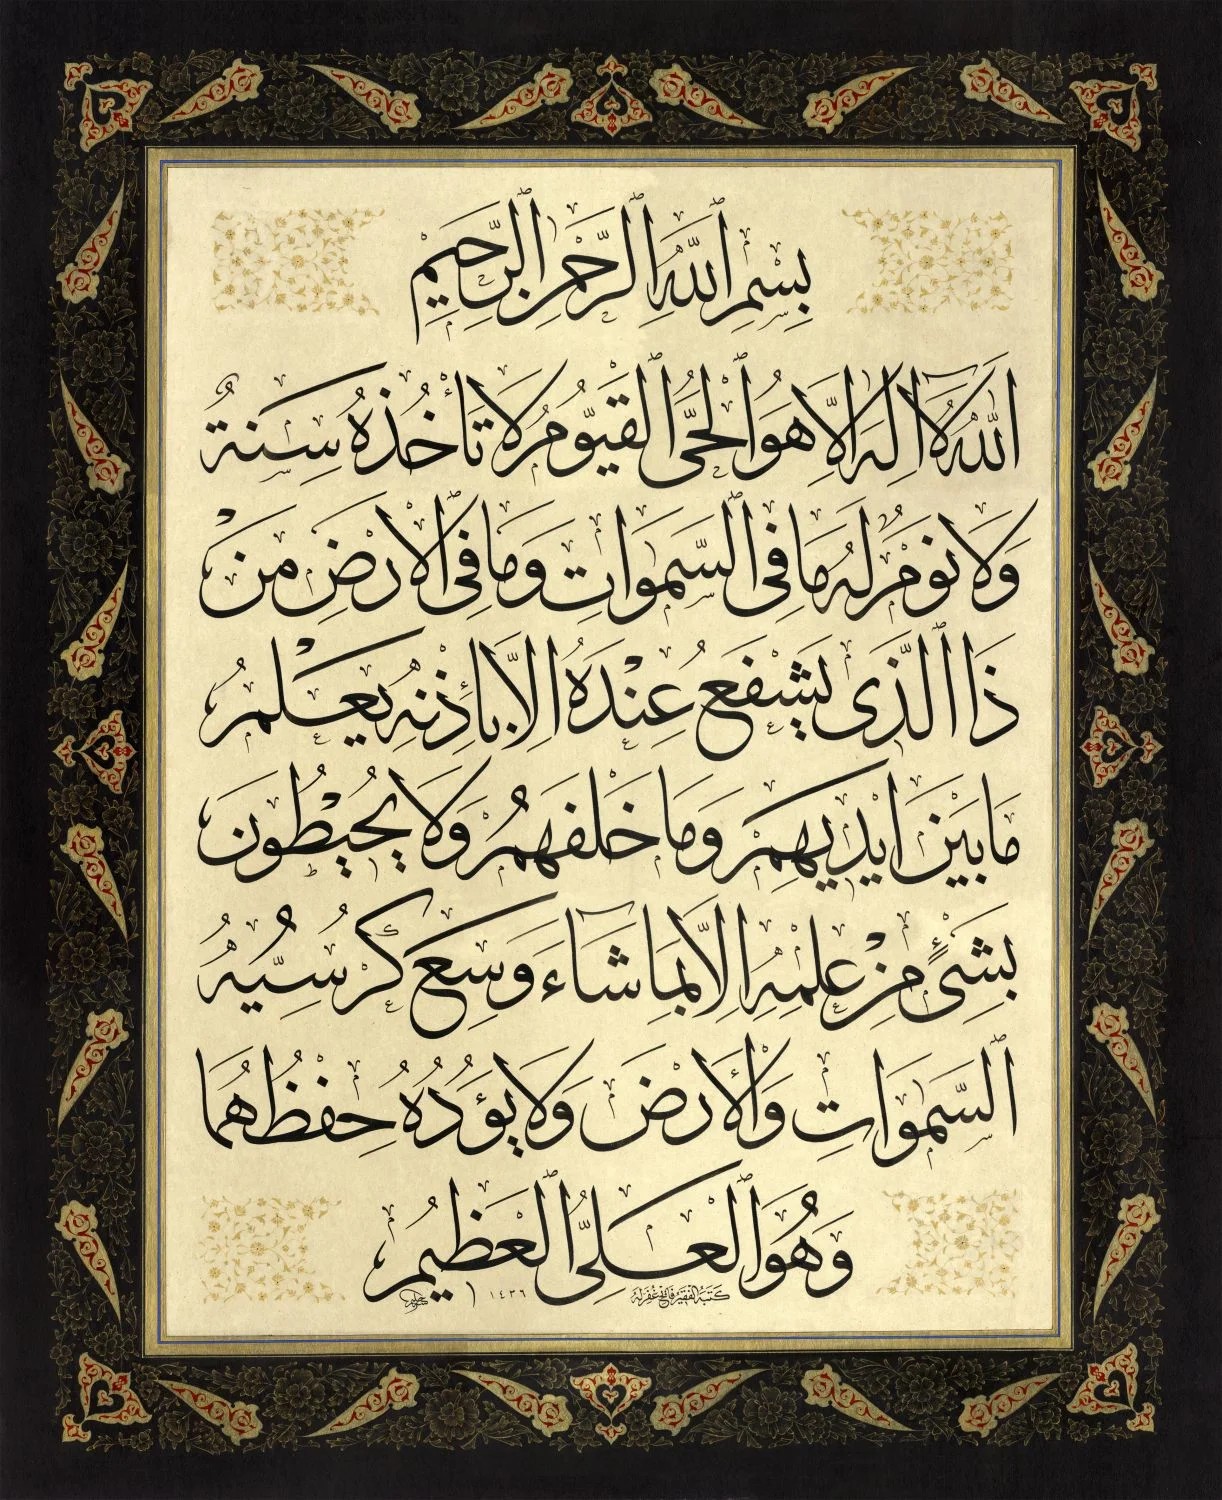 بِسْمِ ٱللَّهِ ٱلرَّحْمٰنِ ٱلرَّحِيمِ
اَللّٰهُ لَٓا اِلٰهَ اِلَّا هُوَ ٱلْحَىُّ ٱلْقَيُّومُ لَا تَأْخُذُهُ سِنَةٌ
وَلَا نَوْمٌ لَهُ مَا فِى ٱلسَّمٰوَاتِ وَمَا فِى ٱلْاَرْضِ مَنْ
ذَا ٱلَّذِى يَشْفَعُ عِنْدَهُ اِلَّا بِاِذْنِهِ يَعْلَمُ
مَا بَيْنَ اَيْدِيهِمْ وَمَا خَلْفَهُمْ وَلَا يُحِيطُونَ
بِشَىْءٍ مِنْ عِلْمِهِ اِلَّا بِمَا شَٓاءَ وَسِعَ كُرْسِيُّهُ
ٱلسَّمٰوَاتِ وَٱلْأَرْضَ وَلَا يَؤُدُهُ حِفْظُهُمَا
وَهُوَ ٱلْعَلِىُّ ٱلْعَظِيمُ
كتبه الفقير فاتح غفر له ١٤٣٦